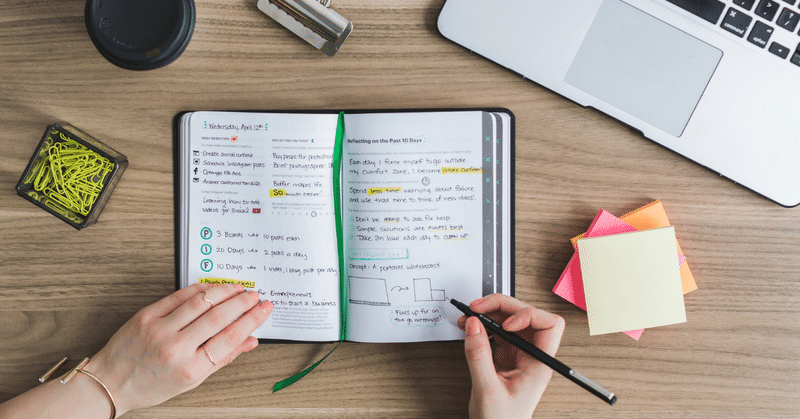 Wednesday, April 12th
DAILY OBJECTIVES
Create social content
Schedule Instagram posts
Optimize FB Ads
Answer customer emails
Learning how to edit
videos for Social
P 3 Boards 10 pins each
I 20 Days 2 posts a day
F 10 Days 1 video, 1 blog post per day
for Entrepreneurs
to start a business
REFLECTING ON TODAY
Buy props for
Brief photographer
Buffer makes life
SO much easier.
Reflecting on the Past 10 Days
Each day I force myself to go outside
my comfort zone, I become
Spend less time worrying about failure
and use that time to think of new ideas!
Don't be afraid to ask for help.
Simple solutions are always best
Take an hour each day to
Concept: A portable whiteboard
Folds up for on
the go meetings!
command
option